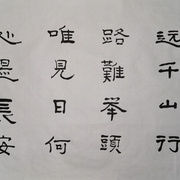 远千山行
路難举頭
唯見日何
处是長安